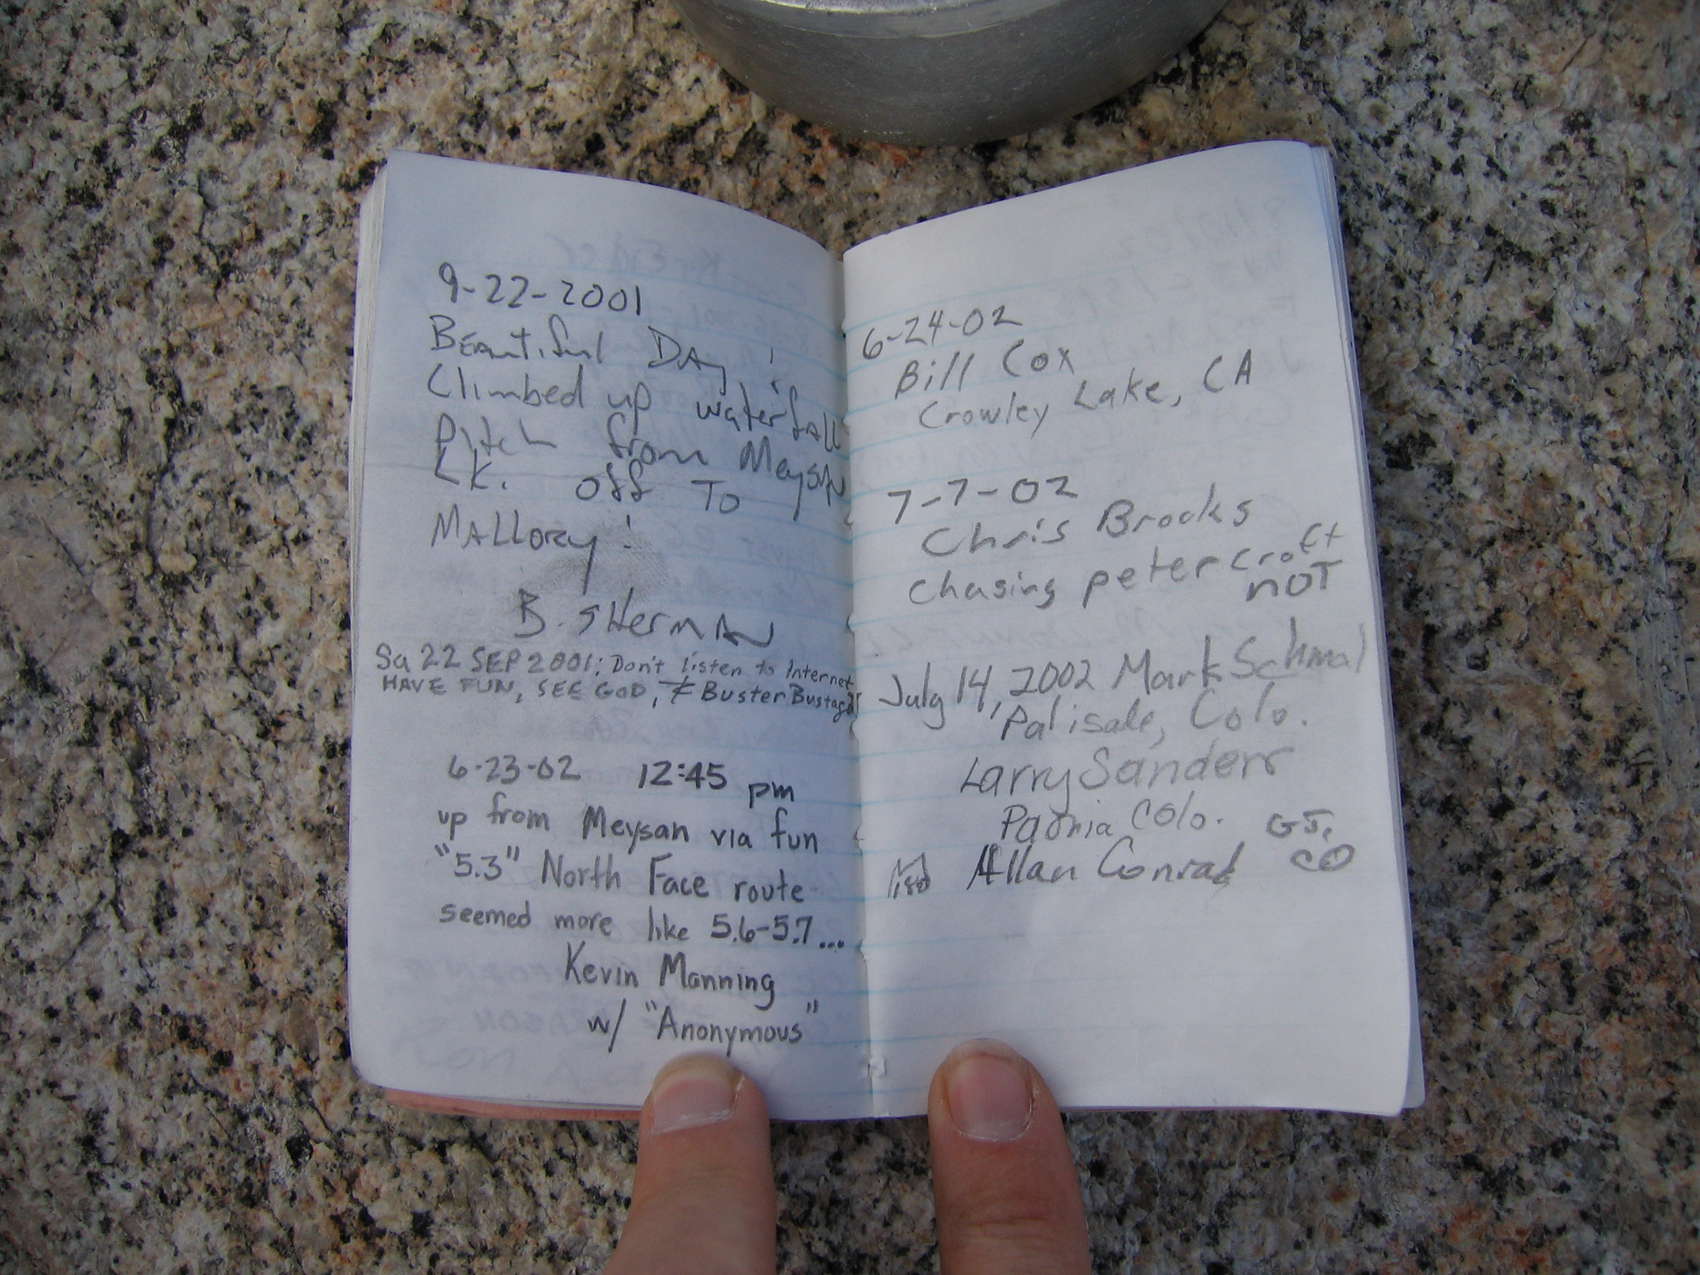 9-22-2001
Beautiful Day!
Climbed up waterfall
Pitch from Meysan
Lk. off To
Mallory!
B. Sherman
Sa 22 SEP 2001: Don't listen to Internet
HAVE FUN, SEE GOD, ≠ Buster Bustagut
6-23-02 12:45 pm
up from Meysan via fun
"5.3" North Face route
seemed more like 5.6-5.7...
Kevin Manning
w/ "Anonymous"
6-24-02
Bill Cox
Crowley Lake, CA
7-7-02
Chris Brooks
Chasing peter croft
noT
July 14, 2002 Mark Schmal
Palisade, Colo.
Larry Sanders
Paonia Colo.
Allan Conrad GJ,
CO